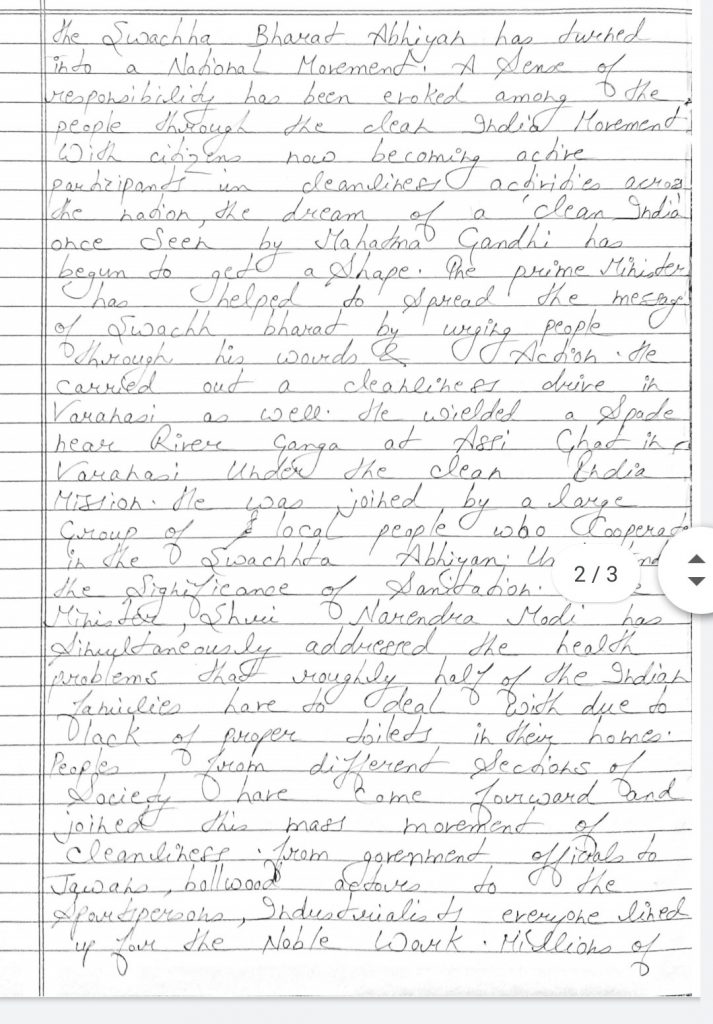 the Swachha Bharat Abhiyan has turned
into a National Movement. A Sense of
responsibility has been evoked among the
people through the clean India Movement.
With citizens now becoming active
participants in cleanliness activities across
the nation, the dream of a 'clean India'
once Seen by Mahatma Gandhi has
begun to get a Shape. The prime Minister
has helped to Spread the message
of Swachh bharat by urging people
through his words & Action. He
carried out a cleanliness drive in
Varanasi as well. He wielded a Spade
near River Ganga at Assi Ghat in
Varanasi Under the clean India
Mission. He was joined by a large
Group of local people who Cooperate
in the Swachhta Abhiyan. Un nd
the Significance of Sanitation.
Minister, Shri Narendra Modi has
Simultaneously addressed the health
problems that roughly half of the Indian
families have to deal With due to
lack of proper toilets in their homes.
Peoples from different Sections of
Society have Come forward and
joined this mass movement of
cleanliness. from government officials to
Jawans, bollwood actors to the
Sportspersons, Industrialists everyone lined
up for the Noble Work. Millions of
2 / 3